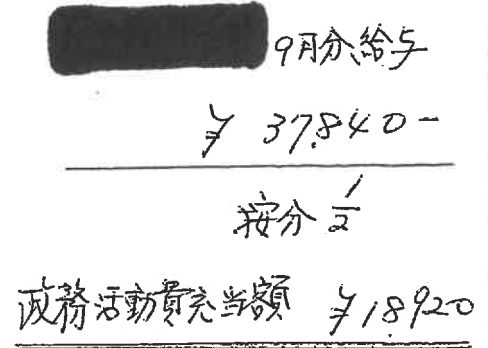 9月分給与
¥ 37,840-
按分 1/2
政務活動費充当額 ¥18,920